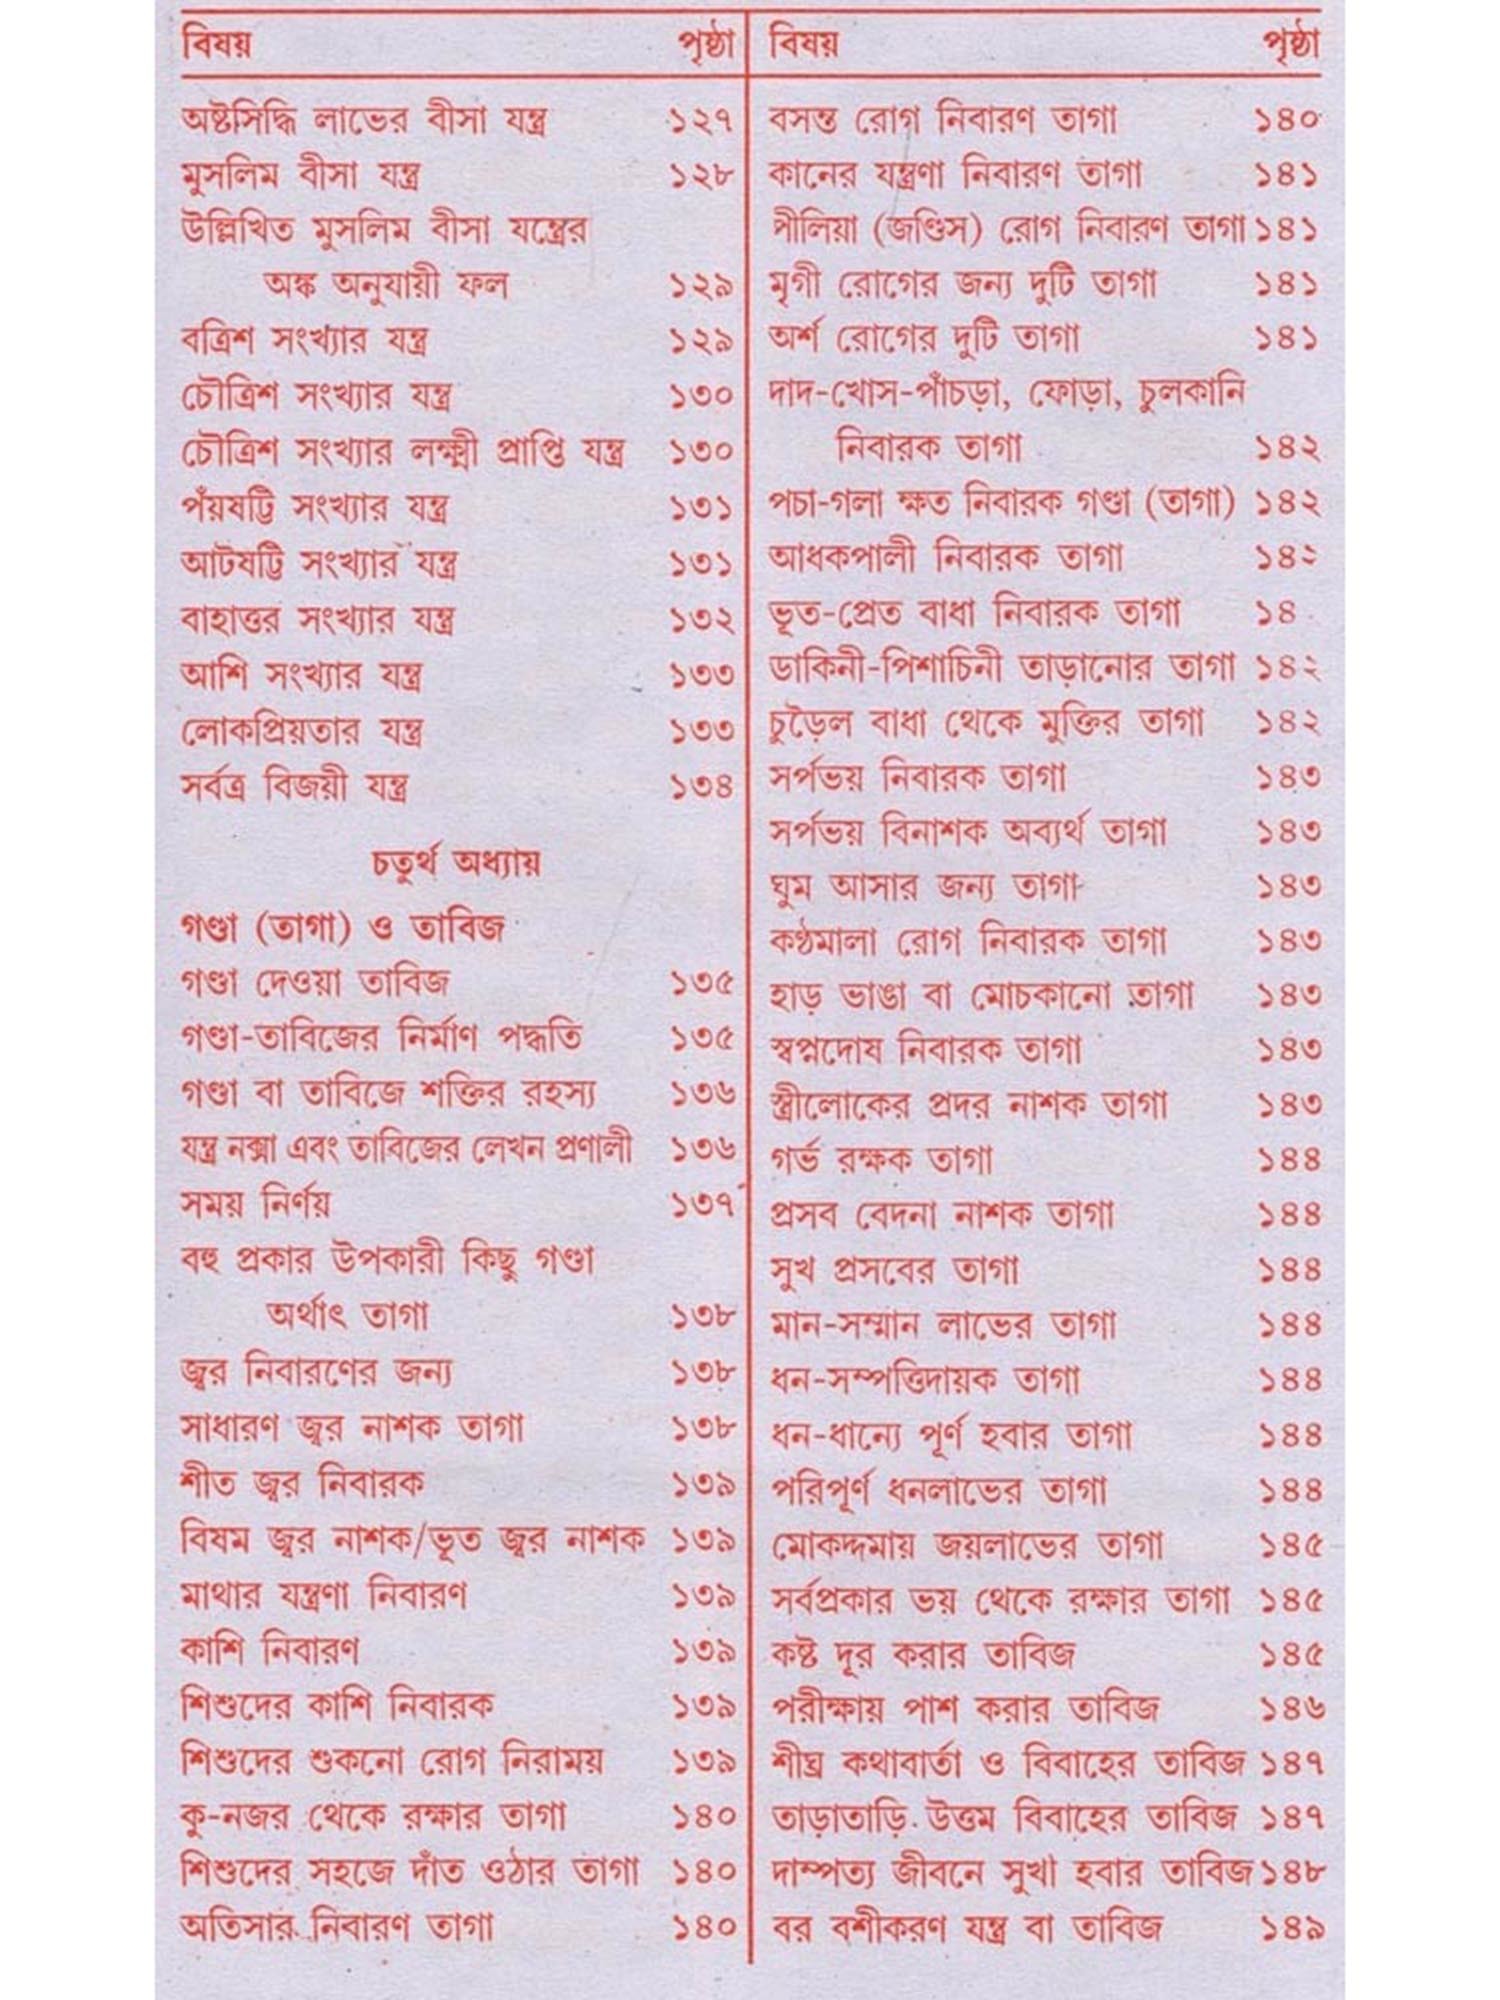 বিষয় পৃষ্ঠা
অষ্টসিদ্ধি লাভের বীসা যন্ত্র ১২৭
মুসলিম বীসা যন্ত্র ১২৮
উল্লিখিত মুসলিম বীসা যন্ত্রের
অঙ্ক অনুযায়ী ফল ১২৯
বত্রিশ সংখ্যার যন্ত্র ১২৯
চৌত্রিশ সংখ্যার যন্ত্র ১৩০
চৌত্রিশ সংখ্যার লক্ষ্মী প্রাপ্তি যন্ত্র ১৩০
পঁয়ষট্টি সংখ্যার যন্ত্র ১৩১
আটষট্টি সংখ্যার যন্ত্র ১৩১
বাহাত্তর সংখ্যার যন্ত্র ১৩২
আশি সংখ্যার যন্ত্র ১৩৩
লোকপ্রিয়তার যন্ত্র ১৩৩
সর্বত্র বিজয়ী যন্ত্র ১৩৪
চতুর্থ অধ্যায়
গণ্ডা (তাগা) ও তাবিজ
গণ্ডা দেওয়া তাবিজ ১৩৫
গণ্ডা-তাবিজের নির্মাণ পদ্ধতি ১৩৫
গণ্ডা বা তাবিজে শক্তির রহস্য ১৩৬
যন্ত্র নক্সা এবং তাবিজের লেখন প্রণালী ১৩৬
সময় নির্ণয় ১৩৭
বহু প্রকার উপকারী কিছু গণ্ডা
অর্থাৎ তাগা ১৩৮
জ্বর নিবারণের জন্য ১৩৮
সাধারণ জ্বর নাশক তাগা ১৩৮
শীত জ্বর নিবারক ১৩৯
বিষম জ্বর নাশক/ভূত জ্বর নাশক ১৩৯
মাথার যন্ত্রণা নিবারণ ১৩৯
কাশি নিবারণ ১৩৯
শিশুদের কাশি নিবারক ১৩৯
শিশুদের শুকনো রোগ নিরাময় ১৩৯
কু-নজর থেকে রক্ষার তাগা ১৪০
শিশুদের সহজে দাঁত ওঠার তাগা ১৪০
অতিসার নিবারণ তাগা ১৪০
বিষয় পৃষ্ঠা
বসন্ত রোগ নিবারণ তাগা ১৪০
কানের যন্ত্রণা নিবারণ তাগা ১৪১
পীলিয়া (জণ্ডিস) রোগ নিবারণ তাগা ১৪১
মৃগী রোগের জন্য দুটি তাগা ১৪১
অর্শ রোগের দুটি তাগা ১৪১
দাদ-খোস-পাঁচড়া, ফোড়া, চুলকানি
নিবারক তাগা ১৪২
পচা-গলা ক্ষত নিবারক গণ্ডা (তাগা) ১৪২
আধকপালী নিবারক তাগা ১৪২
ভূত-প্রেত বাধা নিবারক তাগা ১৪
ডাকিনী-পিশাচিনী তাড়ানোর তাগা ১৪২
চুড়ৈল বাধা থেকে মুক্তির তাগা ১৪২
সর্পভয় নিবারক তাগা ১৪৩
সর্পভয় বিনাশক অব্যর্থ তাগা ১৪৩
ঘুম আসার জন্য তাগা ১৪৩
কণ্ঠমালা রোগ নিবারক তাগা ১৪৩
হাড় ভাঙা বা মোচকানো তাগা ১৪৩
স্বপ্নদোষ নিবারক তাগা ১৪৩
স্ত্রীলোকের প্রদর নাশক তাগা ১৪৩
গর্ভ রক্ষক তাগা ১৪৪
প্রসব বেদনা নাশক তাগা ১৪৪
সুখ প্রসবের তাগা ১৪৪
মান-সম্মান লাভের তাগা ১৪৪
ধন-সম্পত্তিদায়ক তাগা ১৪৪
ধন-ধান্যে পূর্ণ হবার তাগা ১৪৪
পরিপূর্ণ ধনলাভের তাগা ১৪৪
মোকদ্দমায় জয়লাভের তাগা ১৪৫
সর্বপ্রকার ভয় থেকে রক্ষার তাগা ১৪৫
কষ্ট দূর করার তাবিজ ১৪৫
পরীক্ষায় পাশ করার তাবিজ ১৪৬
শীঘ্র কথাবার্তা ও বিবাহের তাবিজ ১৪৭
তাড়াতাড়ি উত্তম বিবাহের তাবিজ ১৪৭
দাম্পত্য জীবনে সুখী হবার তাবিজ ১৪৮
বর বশীকরণ যন্ত্র বা তাবিজ ১৪৯